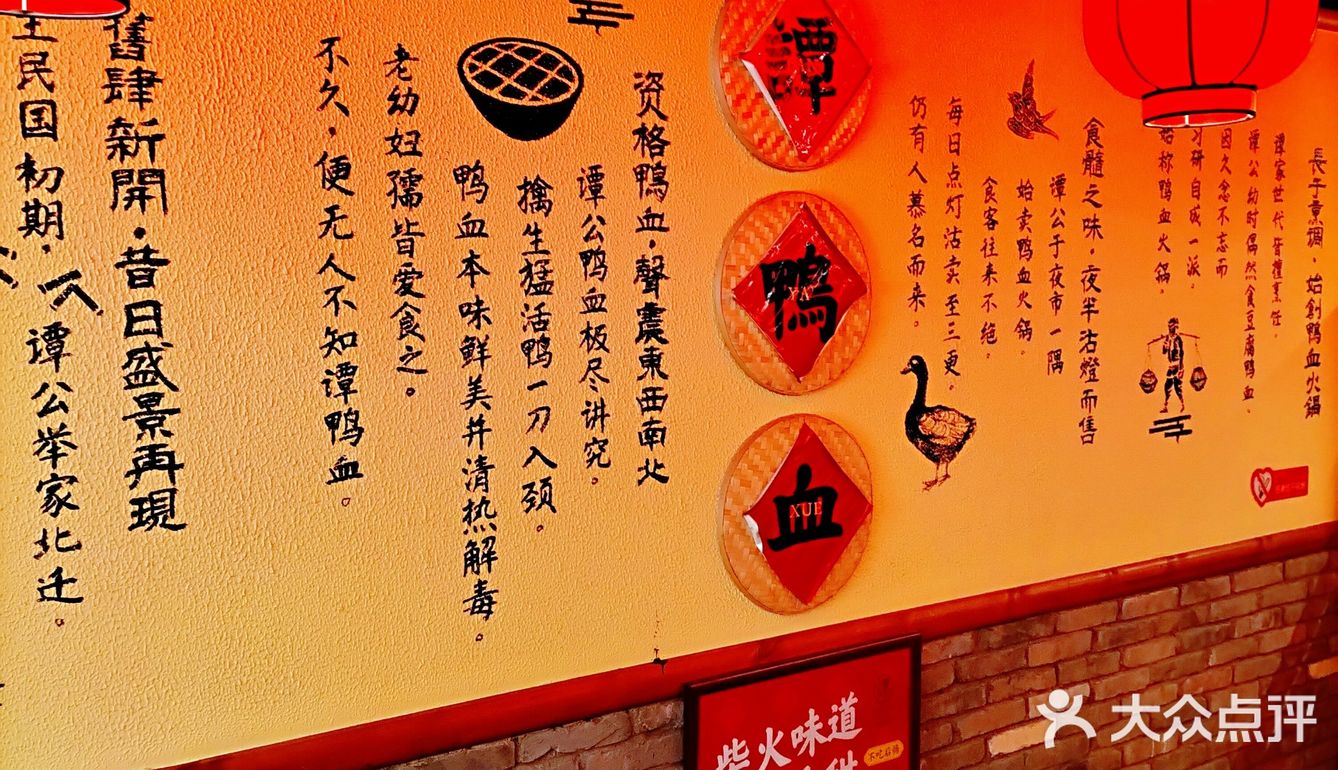 長于烹调·始創鴨血火鍋
谭家世代皆擅烹饪·
谭公幼时偶然食豆腐鸭血。
因久念不忘而
习研自成一派。
始称鸭血火锅。
食髓之味·夜半沽燈而售
谭公于夜市一隅
始卖鸭血火锅。
食客往来不绝。
每日点灯沽卖至三更。
仍有人慕名而来。
譚
鴨
YA
血
XUE
资格鴨血·聲震東西南北
谭公鸭血极尽讲究。
擒生猛活鸭一刀入颈。
鸭血本味鲜美并清热解毒。
老幼妇孺皆爱食之。
不久·便无人不知谭鸭血。
舊肆新開·昔日盛景再現
至民国初期·谭公举家北迁。
柴火味道
大众点评